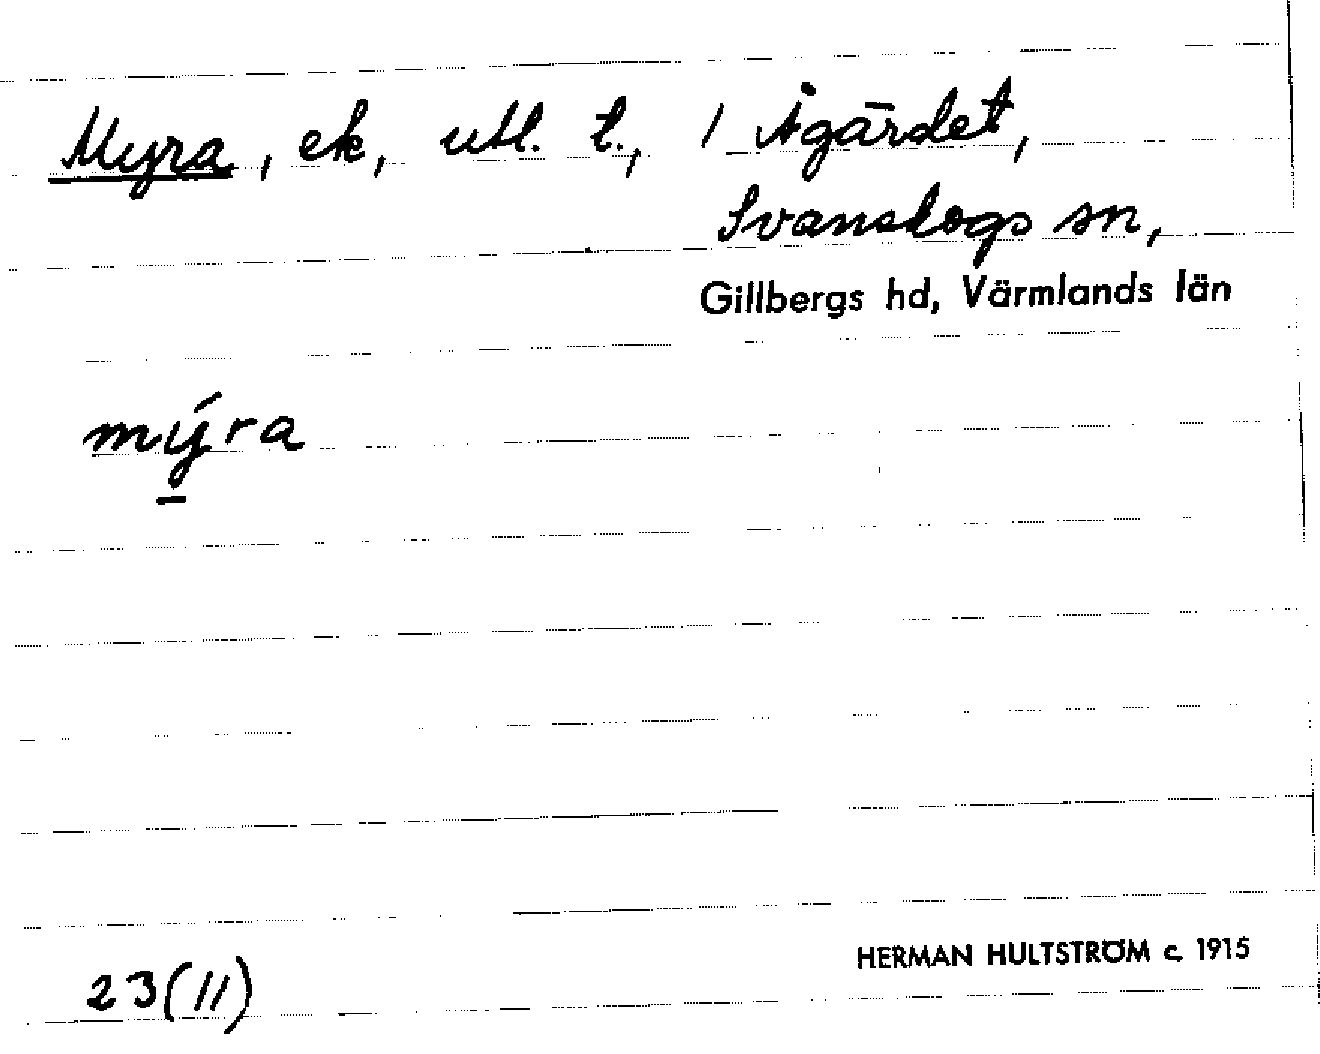 Myra, ek, utl. t., 1 Ågärdet,
Svanskogs sn,
Gillbergs hd, Värmlands län
mýra
23(11)
HERMAN HULTSTRÖM c. 1915